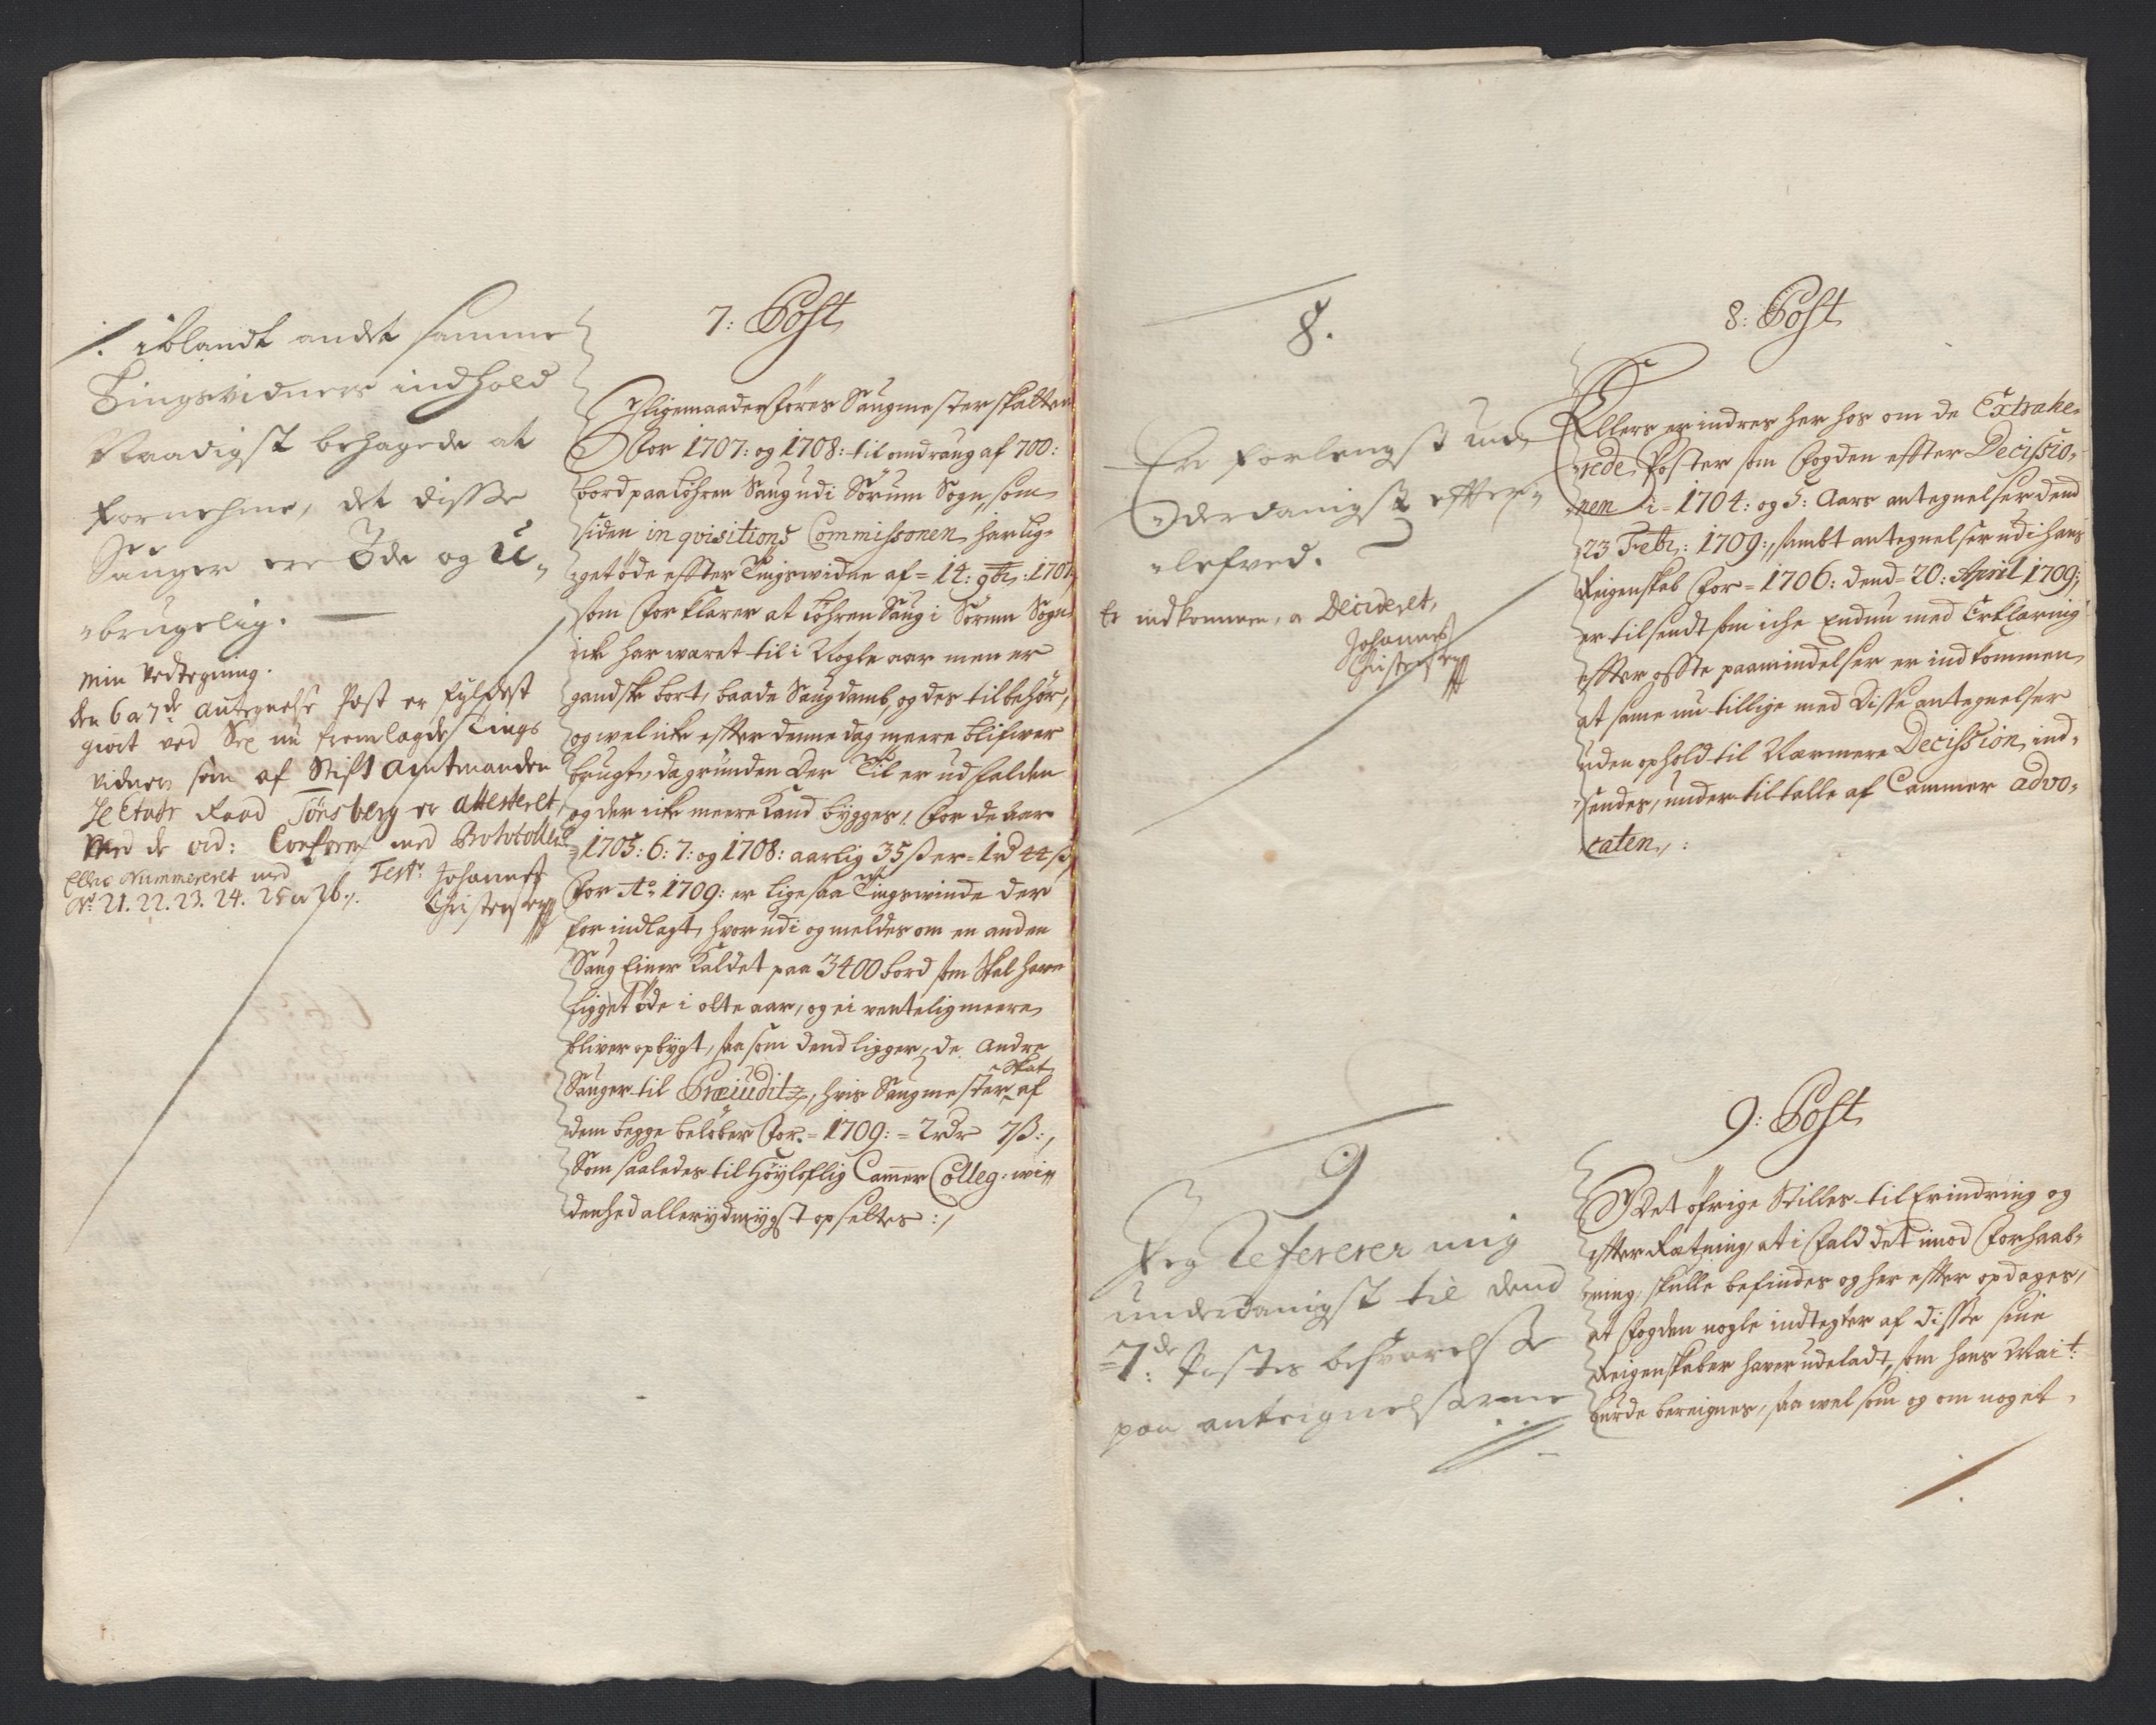 iblandt andet samme
Tingsvidners indhold
Naadigst behagede at
fornehme, det disse
Sauger ere Øde og U„
„brugelig.
Min Vedtegning.
den 6 a 7de antegnelse Post er fyldest
giort ved Sex nu fremlagde Tings
vidner som af Stift Amtmanden
Raad Tønsberg er attesteret,
med de ord: Conform med Prothocollen
Ellers Nummereret med
No: 21. 22. 23. 24. 25 a 26.
Test: Johannes
Christensen
7: Post
Ligemaader føres Saugmester skatten
for 1707: og 1708: til omdraug af 700:
bord paa Löhren Saug udi Sörum Sogn, som
siden inqvisitions Commissionen har lig-
get öde effter Tingswidne af = 14: 9br: 1707
som forklarer at Löhren Saug i Sörum Sogn
icke har waret til i Nogle aar men er
gandske bort, baade Saugdamb, og des tilbehör,
og wel icke effter denne dag meere blifwer
brugt, da grunden der Til er udfalden
og der icke meere kand bygges, for de aar
= 1705: 6: 7: og 1708: aarlig 35 ß er = 1 rd 44 ß
for Ao 1709: er ligesaa Tingswinde der
for indlagt, hvor udi og meldes om en anden
Saug Einer kaldet paa 3400 bord som skal hawe
ligget öde i olte aar, og ei ventelig meere
bliver opbygt, saa som dend ligger de andre
Sauger til Præiuditz, hvis Saugmester skat af
dem begge beløber for = 1709: = 2 rdr 7 ß:,
Som saaledes til Höyloflig Cammer Colleg: wi„
denhed allerydmygst opsettes :/
8.
Er forlengst und„
„derdanigst effter„
„lefved.
Er indkommen, a Decideret,
Johannes
Christensen
8: Post
Ellers erindres her hos om de Extrahe„
„rede Poster som fogden effter Decissio„
„nem i = 1704: og 5: Aars antegnelser dend
23 Febr: 1709:, sambt antegnelser udi hans
Reigenskab for = 1706: dend = 20: April 1709;
er tilsendt som iche endnu med Erklaring
effter offte paamindelser er indkommen
at same nu tillige med disse antegnelser
uden ophold til Narmere Decission, ind„
„sendes, under tiltalle af Cammer advo„
caten, :
9
Jeg Refererer mig
underdanigst til dend
7de: Postes besvarelse
paa antegnelserne
9: Post
Det öfrige Stilles til Erindring og
effter Retning, at i fald det imod forhaab„
„ning, skulle befindes og her effter opdages,
at fogden nogle indtegter af disse sine
Reigenskaber haver udeladt, som hans Mait:
burde bereignes, saa wel som og om noget